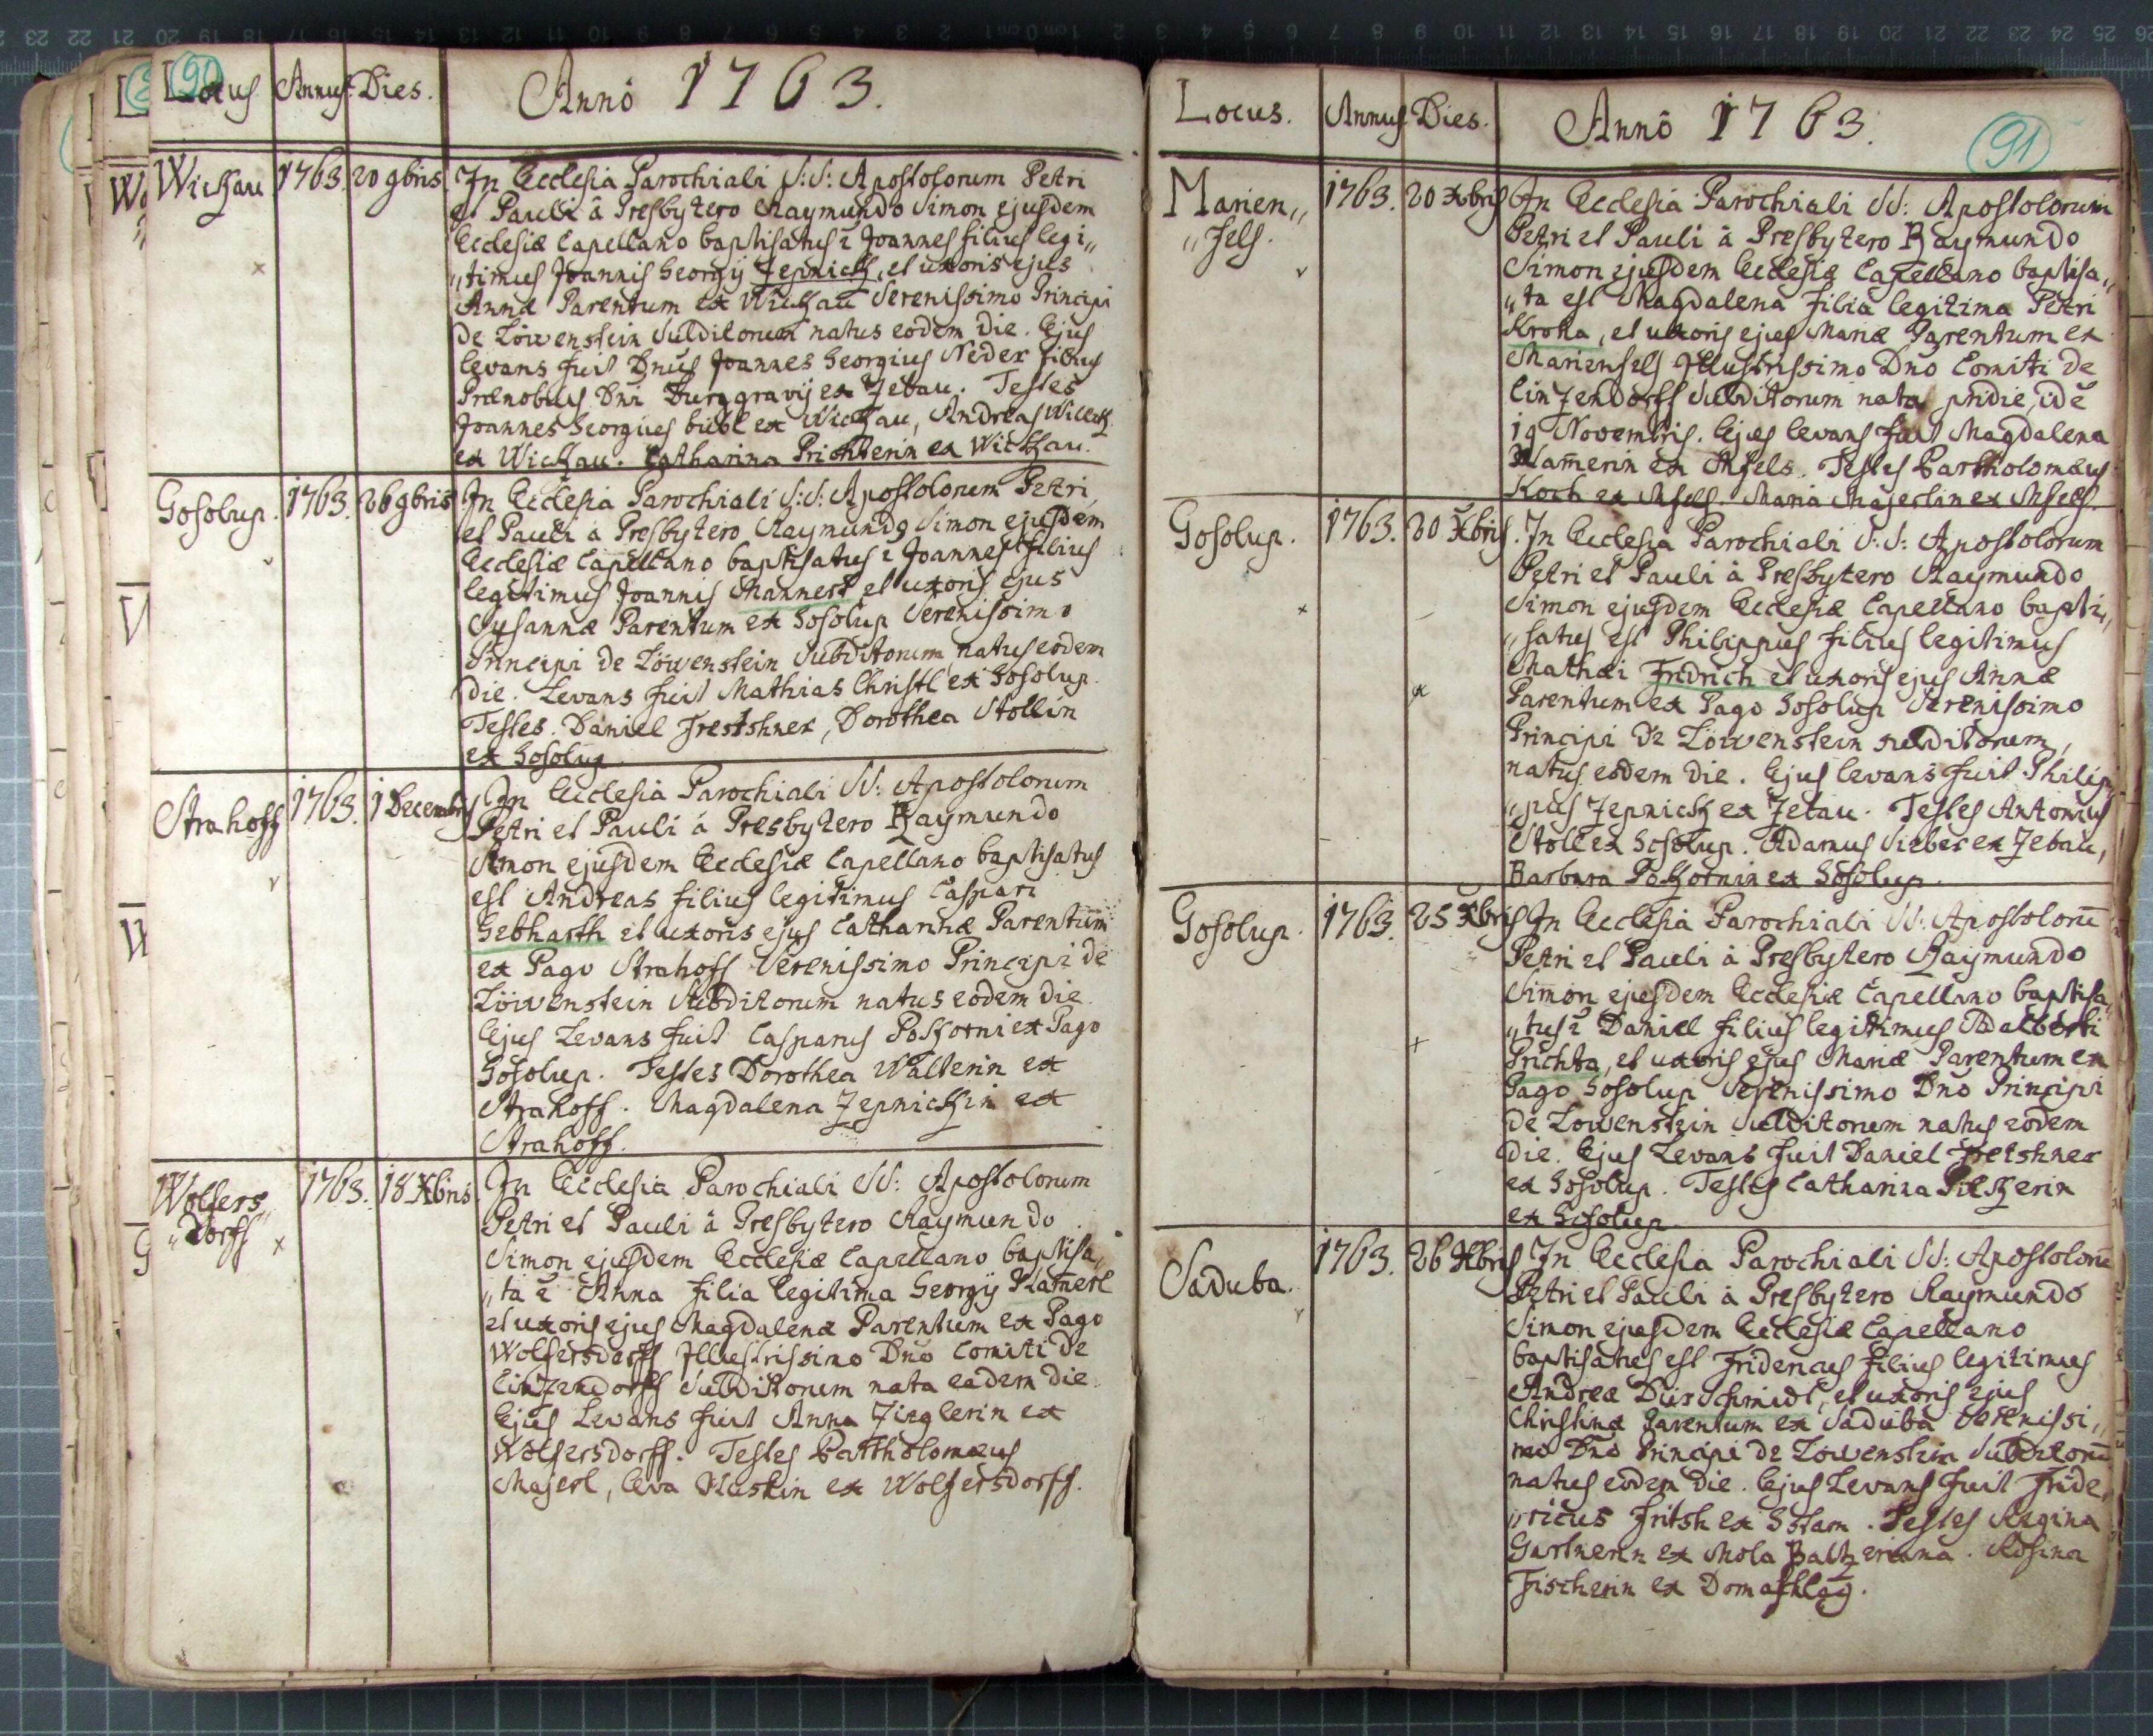 90
Locus Annus. Dies. Anno 1763.
Wickau 1763. 20 9bris In Ecclesia Parochiali S:S: Apostolorum Petri
et Pauli à Presbytero Raymundo Simon ejusdem
Ecclesiæ Capellano baptisatus ē Joannes filius legi„
„timus Joannis Georgÿ Zepnick, et uxoris ejus
Annæ Parentum ex Wickau Serenissimo Principi
de Löwenstein Subditorum natus eodem die. Ejus
levans fuit Dnus Joannes Georgius Neder filius
Prænobilis Dni Burggravÿ ex Zebau. Testes
Joannes Georgius bübl ex Wickau, Andreas
ex Wickau. Catharina Prichterin ex Wickau.
Gosolup. 1763. 26 9bris In Ecclesia Parochiali S:S: Apostolorum Petri
et Pauli à Presbytero Raymundo Simon ejusdem
Ecclesiæ Capellano baptisatus ē Joannes filius
legitimus Joannis Mannert et uxoris ejus
Susannæ Parentum ex Gosolup Serenissimo
Principi de Löwenstein Subditorum, natus eodem
die. Levans fuit Mathias Christl ex Gosolup.
Testes. Daniel Fretshner, Dorothea Stollin
ex Gosolup
Strahoff 1763. 1 Decembris In Ecclesia Parochiali SS: Apostolorum
Petri et Pauli à Presbytero Raymundo
Simon ejusdem Ecclesiæ Capellano baptisatus
est Andreas filius legitimus Caspari
Gebharth et uxoris ejus Catharinæ Parentum
ex Pago Strahoff Serenissimo Principi de
Löwenstein Subditorum natus eodem die.
Ejus Levans fuit Casparus Pokorni ex Pago
Gosolup. Testes Dorothea Walterin ex
Strahoff. Magdalena Zepnickin ex
Strahoff.
Wolfers„ 1763. 18 Xbris In Ecclesia Parochiali SS: Apostolorum
„dorff Petri et Pauli à Presbytero Raymundo
Simon ejusdem Ecclesiæ Capellano baptisa„
„ta ē Anna filia legitima Georgÿ Kam̄erl
et uxoris ejus Magdalenæ Parentum ex Pago
Wolfersdorff Jllustrissimo Dno Comiti de
Cinzendorff Subditorum nata eadem die.
Ejus Levans fuit Anna Zieglerin ex
Wolfersdorff. Testes Bartholomæus
Majerl, Eva ex Wolfersdorff.
Locus. Annus. Dies. Anno 1763.
91
Marien„ 1763. 20 Xbris In Ecclesia Parochiali SS: Apostolorum
„fels. Petri et Pauli à Presbytero Raymundo
Simon ejusdem Ecclesiæ Capellano baptisa„
„ta est Magdalena filia legitima Petri
Krotta, et uxoris ejus Mariæ Parentum ex
Marienfels Jllustrissimo Dno Comiti de
Cinzendorff Subditorum nata pridie, idē
19 Novembris. Ejus levans fuit Magdalena
Kam̄erin ex Mfels. Testes Bartholomæus
Koch ex Mfels. Maria Majerlin ex Mfels.
Gosolup. 1763. 20 Xbris. In Ecclesia Parochiali S:S: Apostolorum
Petri et Pauli à Presbytero Raymundo
Simon ejusdem Ecclesiæ Capellano bapti„
„satus est Philippus filius legitimus
Mathæi Fridrich et uxoris ejus Annæ
Parentum ex Pago Gosolup Serenissimo
Principi de Löwenstein subditorum,
natus eodem die. Ejus levans fuit Philip„
„pus Zepnick ex Zebau. Testes Antonius
Stoll ex Gosolup. Adamus Sieber ex Zebau,
Barbara Pokornin ex Gosolup.
Gosolup. 1763. 25 Xbris In Ecclesia Parochiali SS: Apostolorū
Petri et Pauli à Presbytero Raymundo
Simon ejusdem Ecclesiæ Capellano baptisa„
„tus ē Daniel filius legitimus Adalberti
Prichta, et uxoris ejus Mariæ Parentum ex
Pago Gosolup Serenissimo Dno Principi
de Löwenstein Subditorum natus eodem
die. Ejus Levans fuit Daniel Fretshner
ex Gosolup. Testes Catharina
ex Gosolup
Saduba. 1763. 26 Xbris In Ecclesia Parochiali SS: Apostolorū
Petri et Pauli à Presbytero Raymundo
Simon ejusdem Ecclesiæ Capellano
baptisatus est Fridericus filius legitimus
Andreæ Dürschmidt, et uxoris ejus
Christinæ Parentum ex Saduba Serenissi„
mo Dno Principi de Löwenstein Subditorū
natus eodem die. Ejus Levans fuit Fride„
„ricus Fritsh ex Gstam. Testes Regina
Gartnerin ex Mola Baltzeriana. Rosina
Fischerin ex Domashlag.